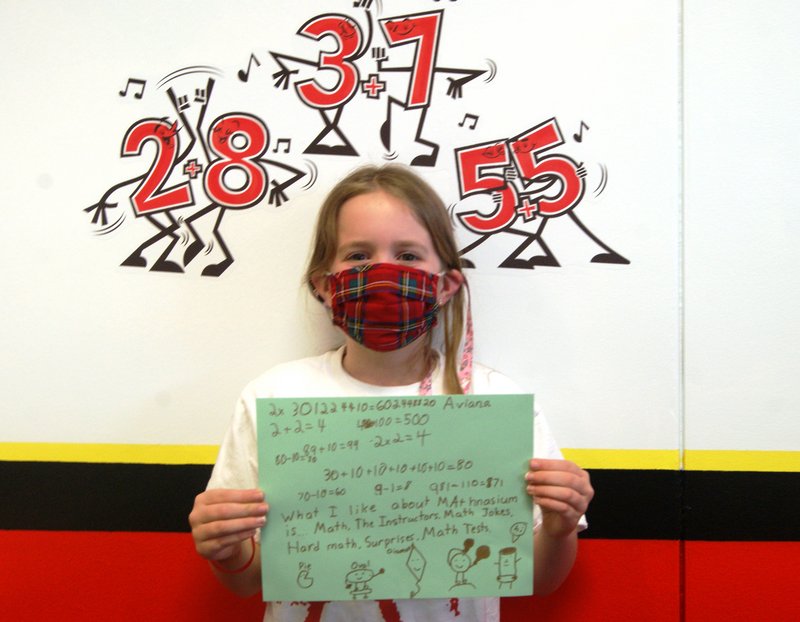 3+7
2+8
5+5
2x 30122 4410=60244820 Aviana
2+2=4 400+100=500
89+10=99 2x2=4
80-10=70
30+10+10+10+10+10=80
70-10=60 9-1=8 981-110=871
What I like about MAthnasium
is... Math, The Instructors, Math Jokes,
Hard math, Surprises, Math Tests.
Pie Oval Diamond